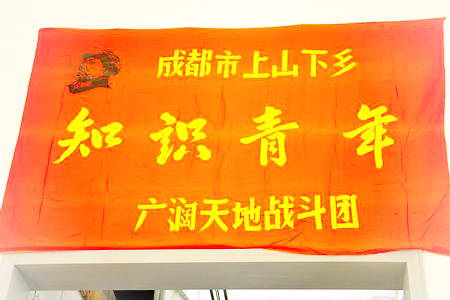 成都市上山下乡
知识青年
广阔天地战斗团